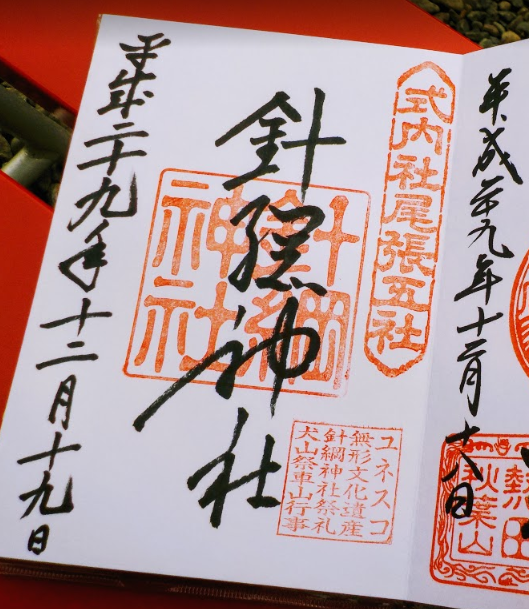 平成廿九年十二月十八日
熱田
秋葉山
式内社尾張五社
針綱神社
針綱
神社
ユネスコ
無形文化遺産
針綱神社祭礼
犬山祭車山行事
平成二十九年十二月十九日